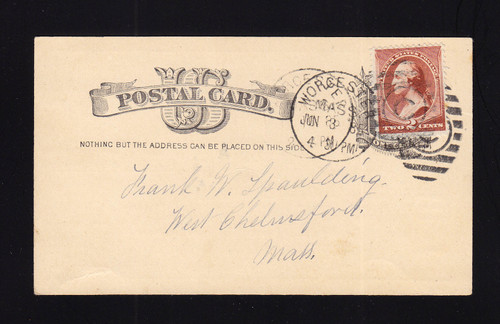 US
POSTAL CARD.
NOTHING BUT THE ADDRESS CAN BE PLACED ON THIS SIDE
WORCESTER
MASS
JUN 8
4 PM
TWO 2 CENTS
Frank W. Spaulding.
West Chelmsford.
Mass.